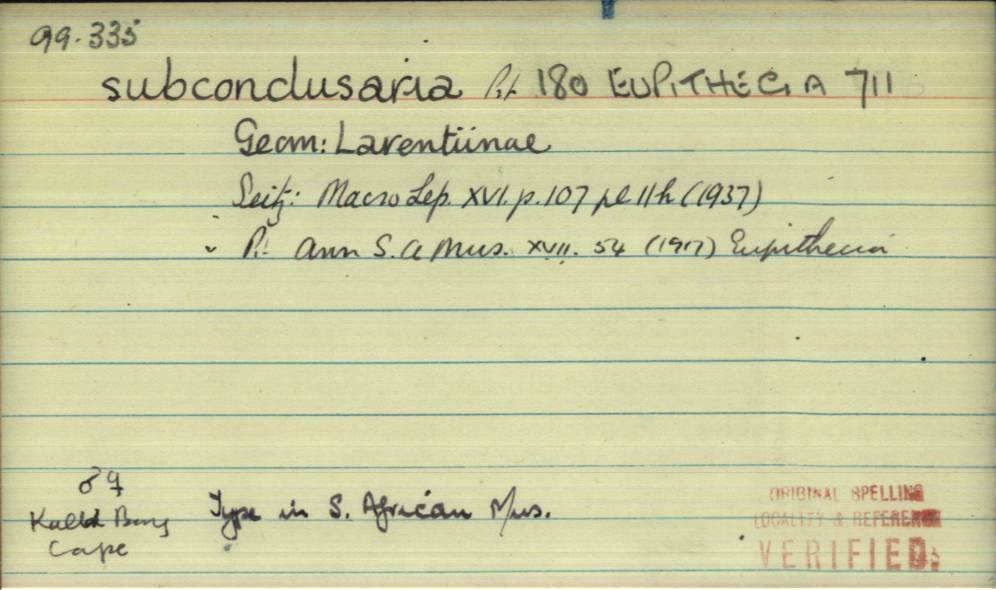 99.335
subconclusaria Prt 180 EUPITHECIA 711
Geom: Larentiinae
Seitz: Macro Lep. XVI. p. 107 pl 11h (1937)
Pr: Ann S. A Mus. XVII. 54 (1917) Eupithecia
♂♀
Kalk Bay
Cape
Type in S. African Mus.
ORIGINAL SPELLING
LOCALITY & REFERENCE
VERIFIED